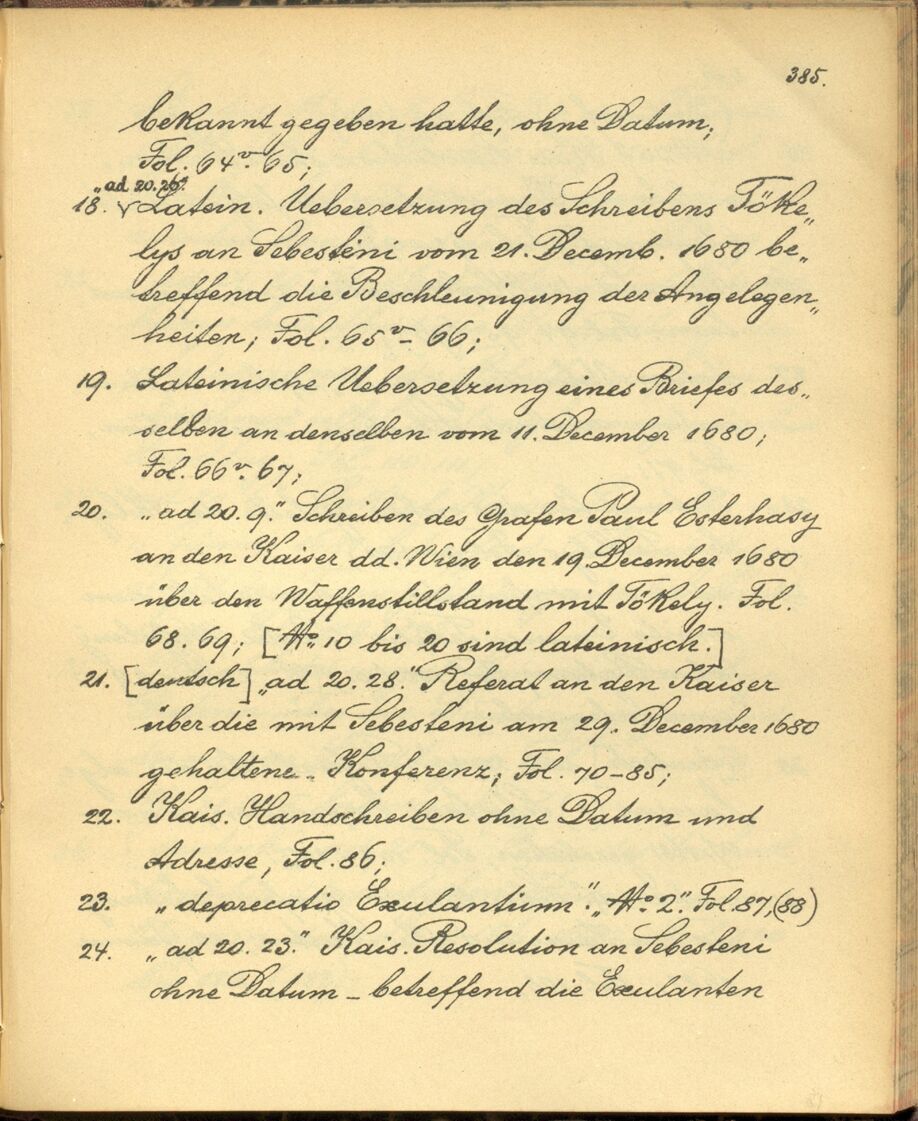 385.
bekannt gegeben hatte, ohne Datum;
Fol. 64v. 65;
"ad 20. 26."
18. Latein. Uebersetzung des Schreibens Töke„
lys an Sebesténi vom 21. Decemb. 1680 be„
treffend die Beschleunigung der Angelegen„
heiten; Fol. 65v – 66;
19. Lateinische Uebersetzung eines Briefes des„
selben an denselben vom 11. December 1680;
Fol. 66v. 67;
20. „ad 20. 9." Schreiben des Grafen Paul Esterhasy
an den Kaiser dd. Wien den 19. December 1680
über den Waffenstillstand mit Tökely. Fol.
68. 69; [No. 10 bis 20 sind lateinisch.]
21. [deutsch] „ad 20. 28." Referat an den Kaiser
über die mit Sebesteni am 29. December 1680
gehaltene Konferenz; Fol. 70–85;
22. Kais. Handschreiben ohne Datum und
Adresse, Fol. 86;
23. „deprecatio Exulantium". „No. 2". Fol. 87, (88)
24. „ad 20. 23." Kais. Resolution an Sebesteni
ohne Datum – betreffend die Exulanten